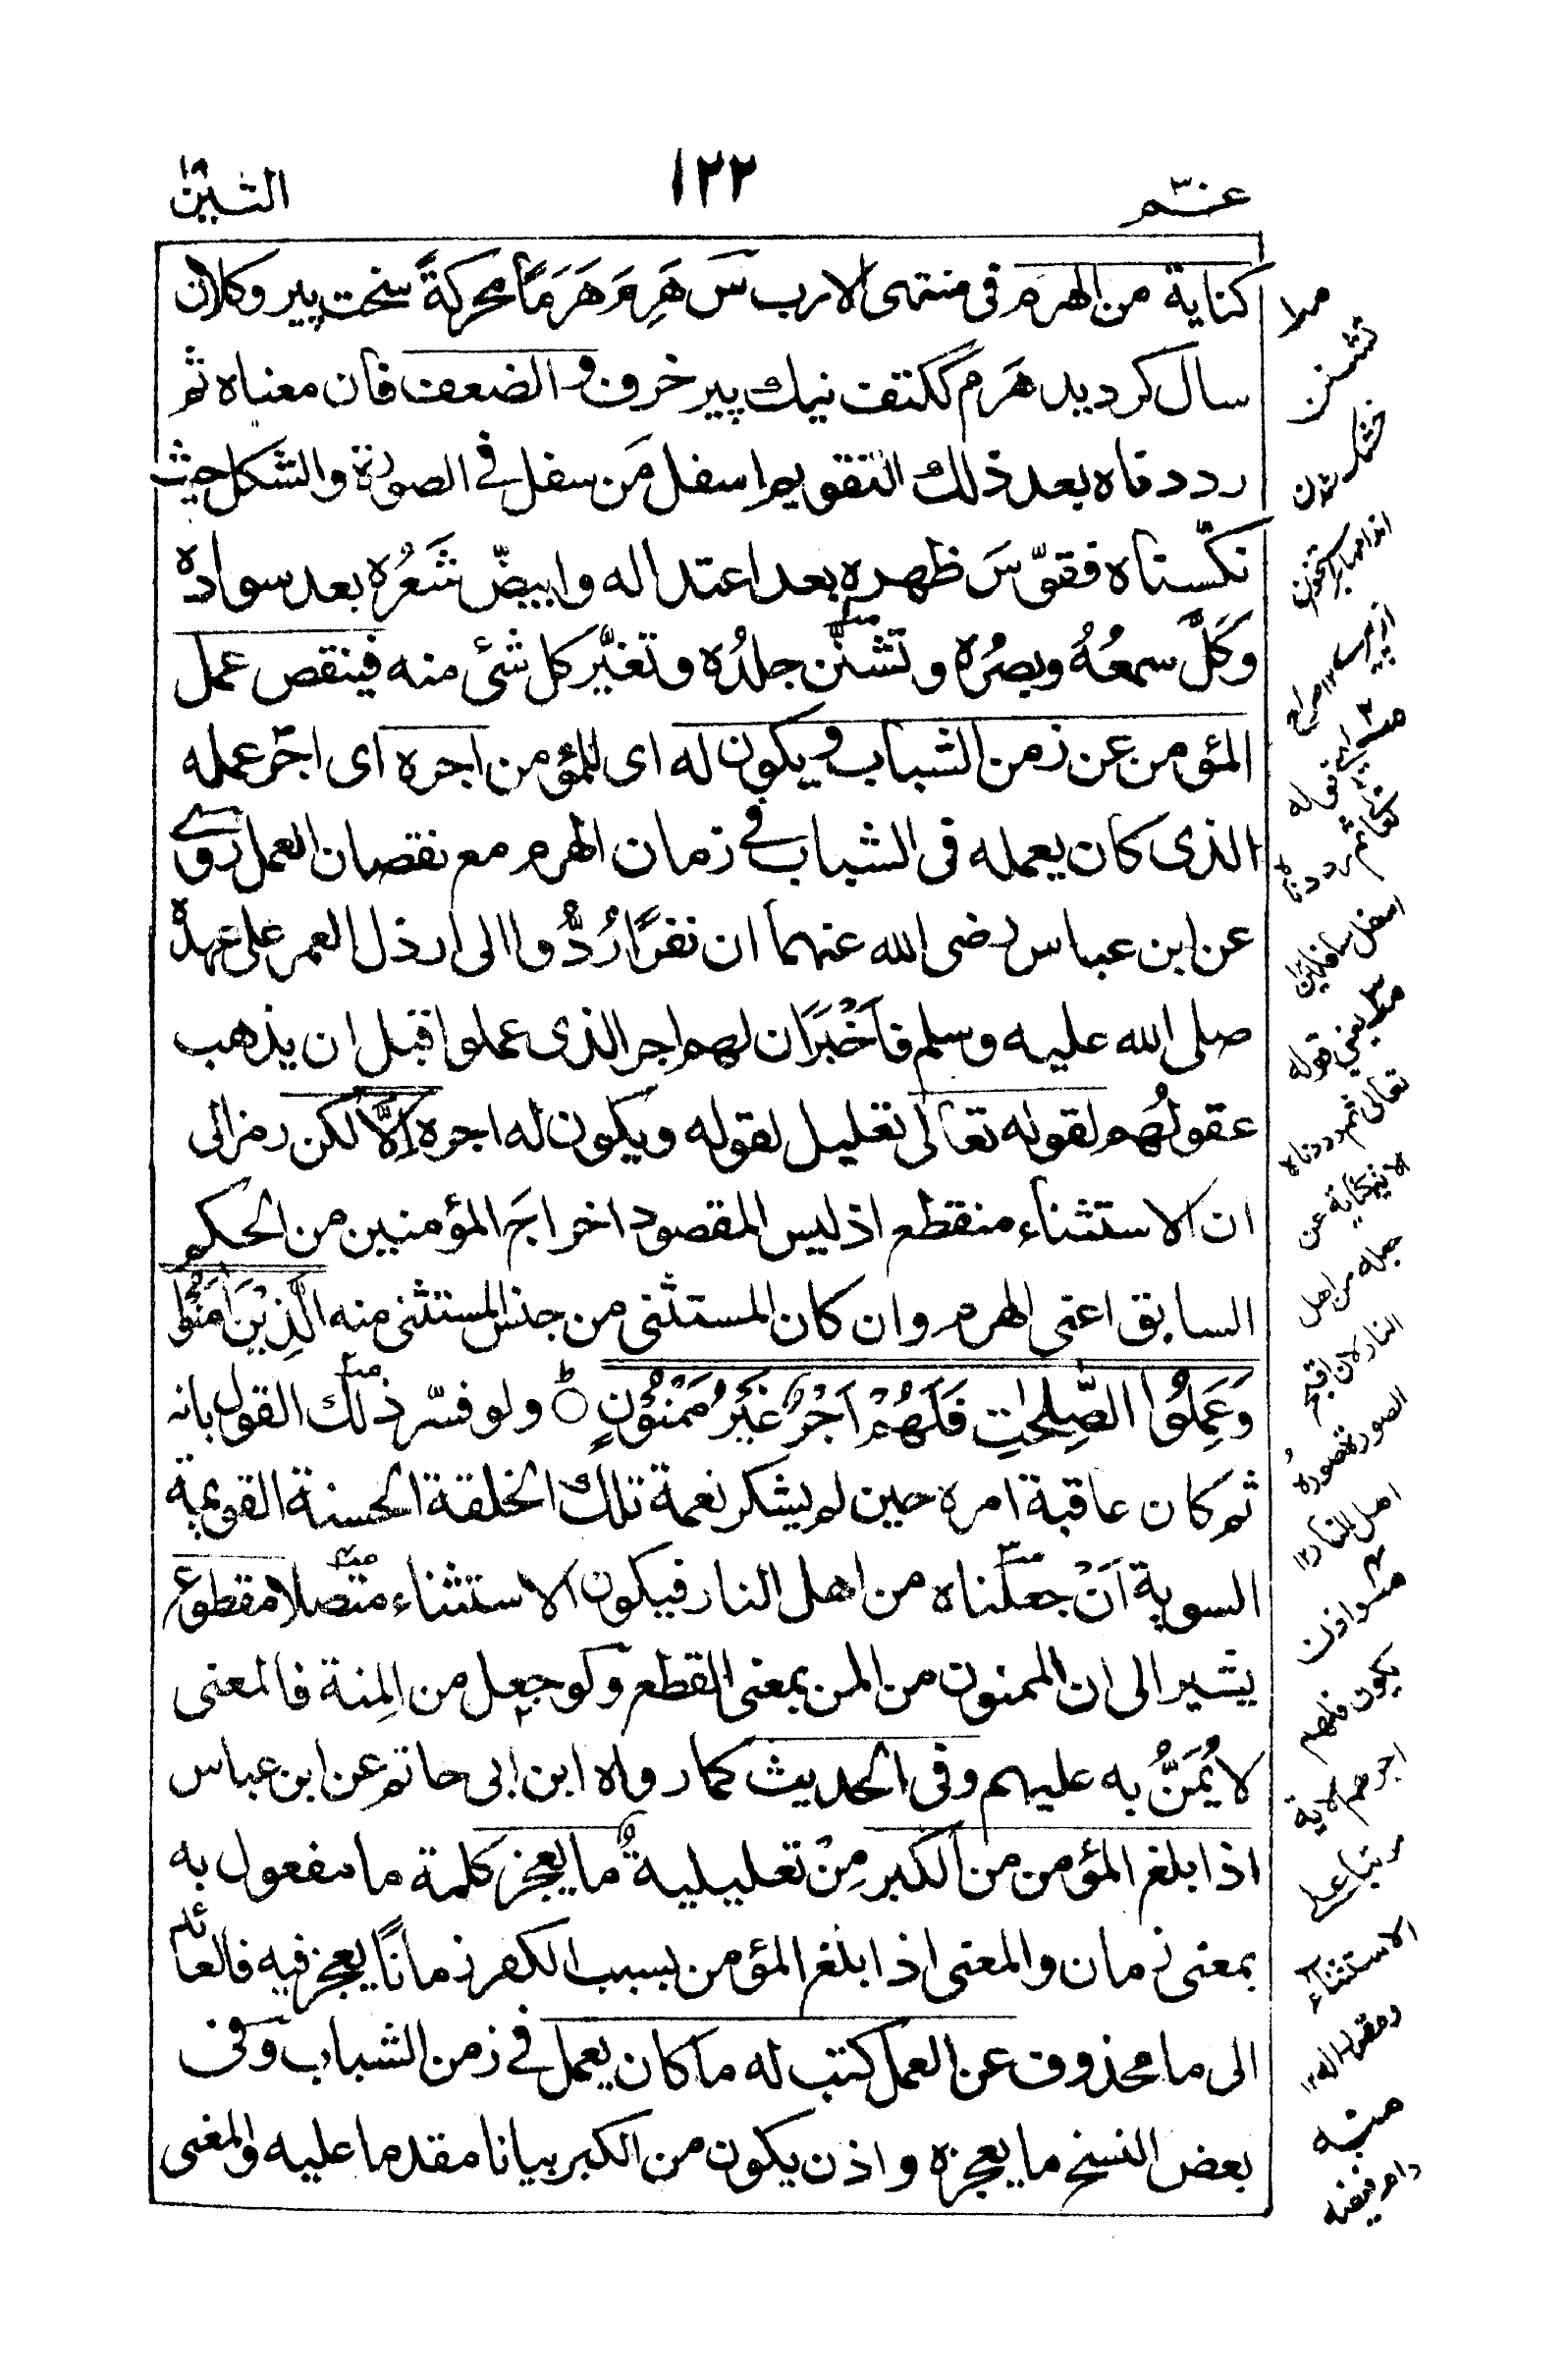 عـم ٣٠
١٢٢
التين ٩٥
كناية من الهرم فى منتهى الارب س هَرِمَ هَرَمًا محركةً سخت پير وكلان
سال كرديد هَرِم ككتف نيك پير خرف والضعف فان معناه ثم
رددناه بعد ذلك التقويم اسفل مَن سفل فى الصورة والشكل حيث
نكّسناه فقوّسَ ظهره بعد اعتداله وابيضّ شَعرُه بعد سواده
وَكَلَّ سمعُهُ وبصرُه وتشنّن جلدُه وتغيَّر كل شئ منه فينقص عمل
المؤمن عن زمن الشباب ويكون له اى للمؤمن اجره اى اجر عمله
الذى كان يعمله فى الشباب فى زمان الهرم مع نقصان العمل روى
عن ابن عباس رضى الله عنهما ان نفرًا رُدُّوا الى ارذل العمر على عهده
صلى الله عليه وسلم فاَخْبَرَ ان لهم اجر الذى عملوا قبل ان يذهب
عقولُهم لقوله تعالى تعليل لقوله ويكون له اجره اِلَّا لكن رمز الى
ان الاستثناء منقطع اذ ليس المقصود اخراجَ المؤمنين من الحكم
السابق اعنى الهرم وان كان المستثنى من جنس المستثنى منه الَّذِيْنَ اٰمَنُوْا
وَعَمِلُوا الصّٰلِحٰتِ فَلَهُمْ اَجْرٌ غَيْرُ مَمْنُوْنٍ ط ولو فسّر ذلك القول بانه
ثم كان عاقبة امره حين لم يشكر نعمة تلك الخلقة الحسنة القويمة
السوية اَنْ جعلناه من اهل النار فيكون الاستثناء متصلا مقطوع
يشير الى ان الممنون من المن بمعنى القطع ولو جعل من المِنة فالمعنى
لا يُمَنُّ به عليهم وفى الحديث كما رواه ابن ابى حاتم عن ابن عباس
اذا بلغ المؤمن من الكبر مِنْ تعليلية ما يعجز كلمة ما مفعول به
بمعنى زمان والمعنى اذا بلغ المؤمن بسبب الكبر زمانًا يعجز فيه فالعائد
الى ما محذوف عن العمل كتب له ما كان يعمل فى زمن الشباب وفى
بعض النسخ ما يعجزه واذن يكون من الكبر بيانا مقدما عليه والمعنى
تشنن
اسفل سافلين
يعنى قوله
تعالى ثم رددناه
كناية عن
جعله من اهل
النار لان اقبح
الصورة صورة
اهل النار ١٢
واذن
يكون فلهم
اجرهم الآية
مرتبا على
الاستثناء
منه
دام فيضه